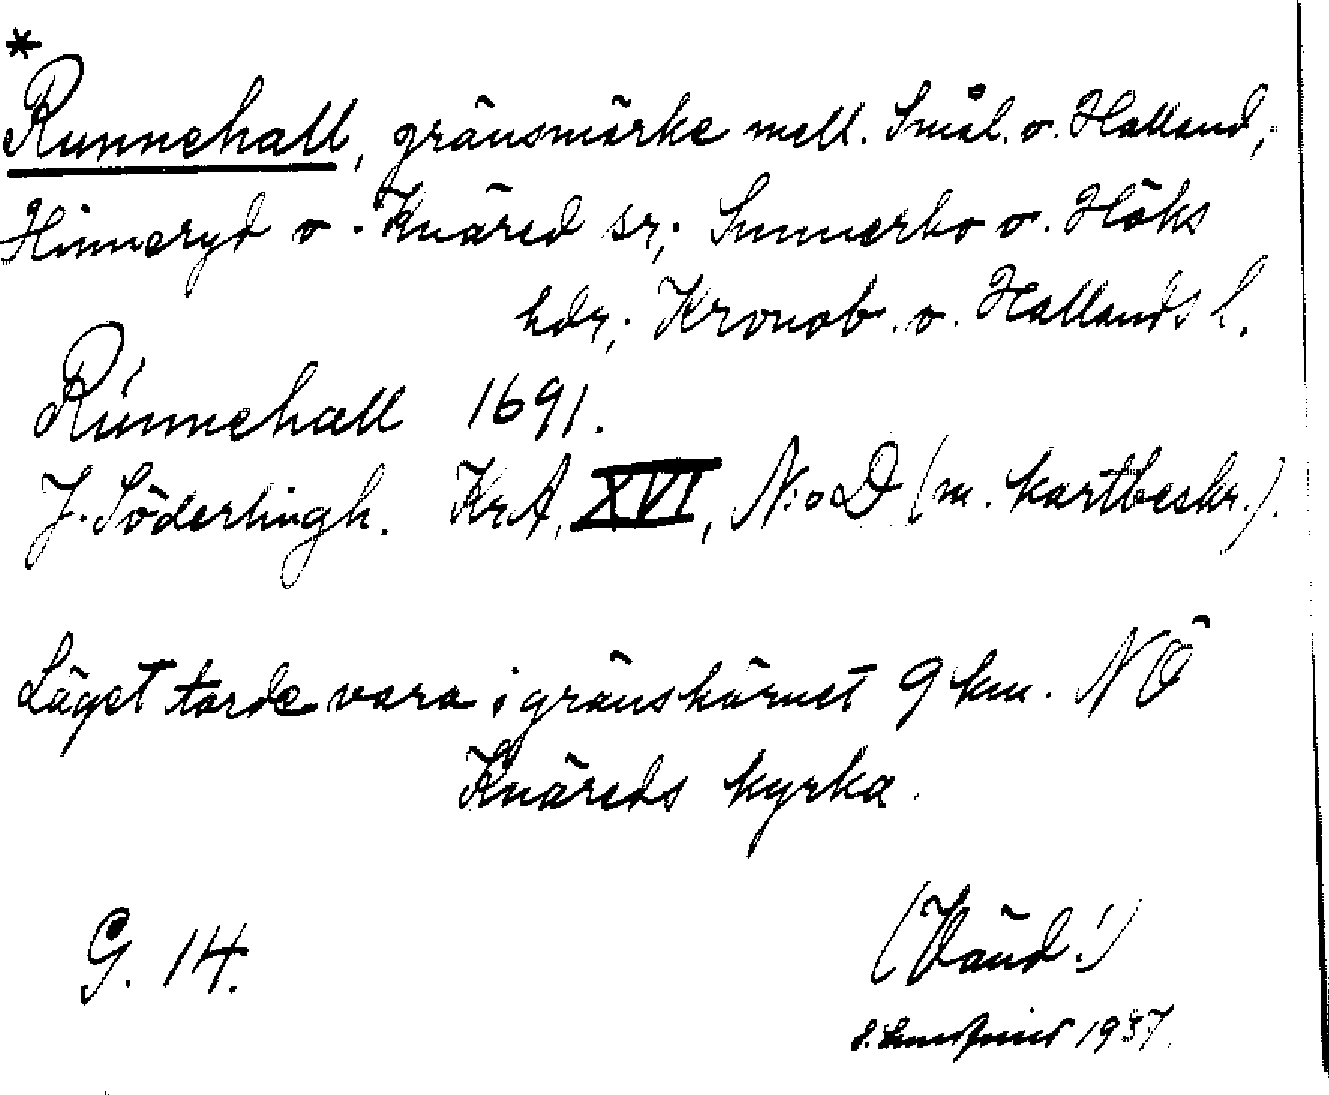 *
Runnehall, gränsmärke mell. Smål. o. Halland;
Hinneryd o. Knäred sr; Sunnerbo o. Höks
hdr; Kronob. o. Hallands l.
Runnehall 1691.
J. Söderlingh. KrA, XVI, N:o D (m. kartbeskr.).
Läget torde vara i gränshörnet 9 km. NÖ
Knäreds kyrka.
G. 14.
(Vänd!)
1937.